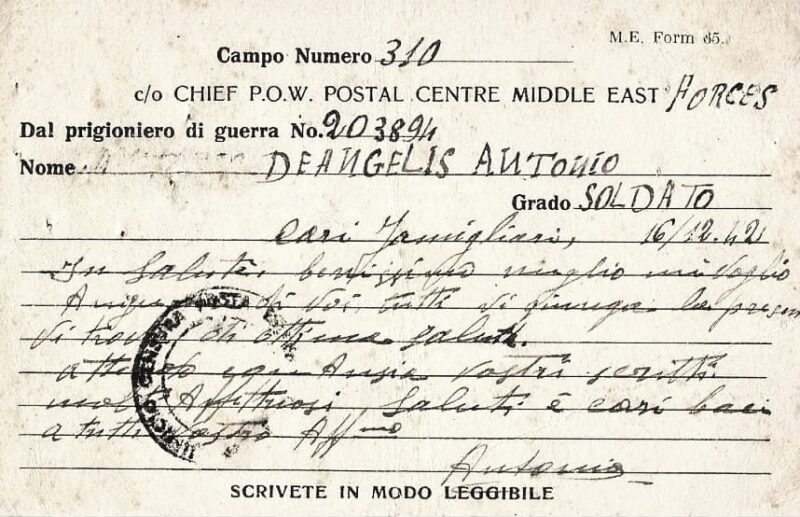 M.E. Form 65.
Campo Numero 310
c/o CHIEF P.O.W. POSTAL CENTRE MIDDLE EAST FORCES
Dal prigioniero di guerra No. 203894
Nome DEANGELIS ANTONIO
Grado SOLDATO
Cari Famigliari, 16/12.42
In Salute, benissimo meglio mi voglio
di Voi, tutti Vi giunga la presen
Vi trovi di ottima salute.
attendo con Ansia Vostri scritti
molti Affettuosi, Saluti e cari baci
a tutti Vostro Aff.mo
Antonio
UFFICIO CENSURA POSTA
SCRIVETE IN MODO LEGGIBILE